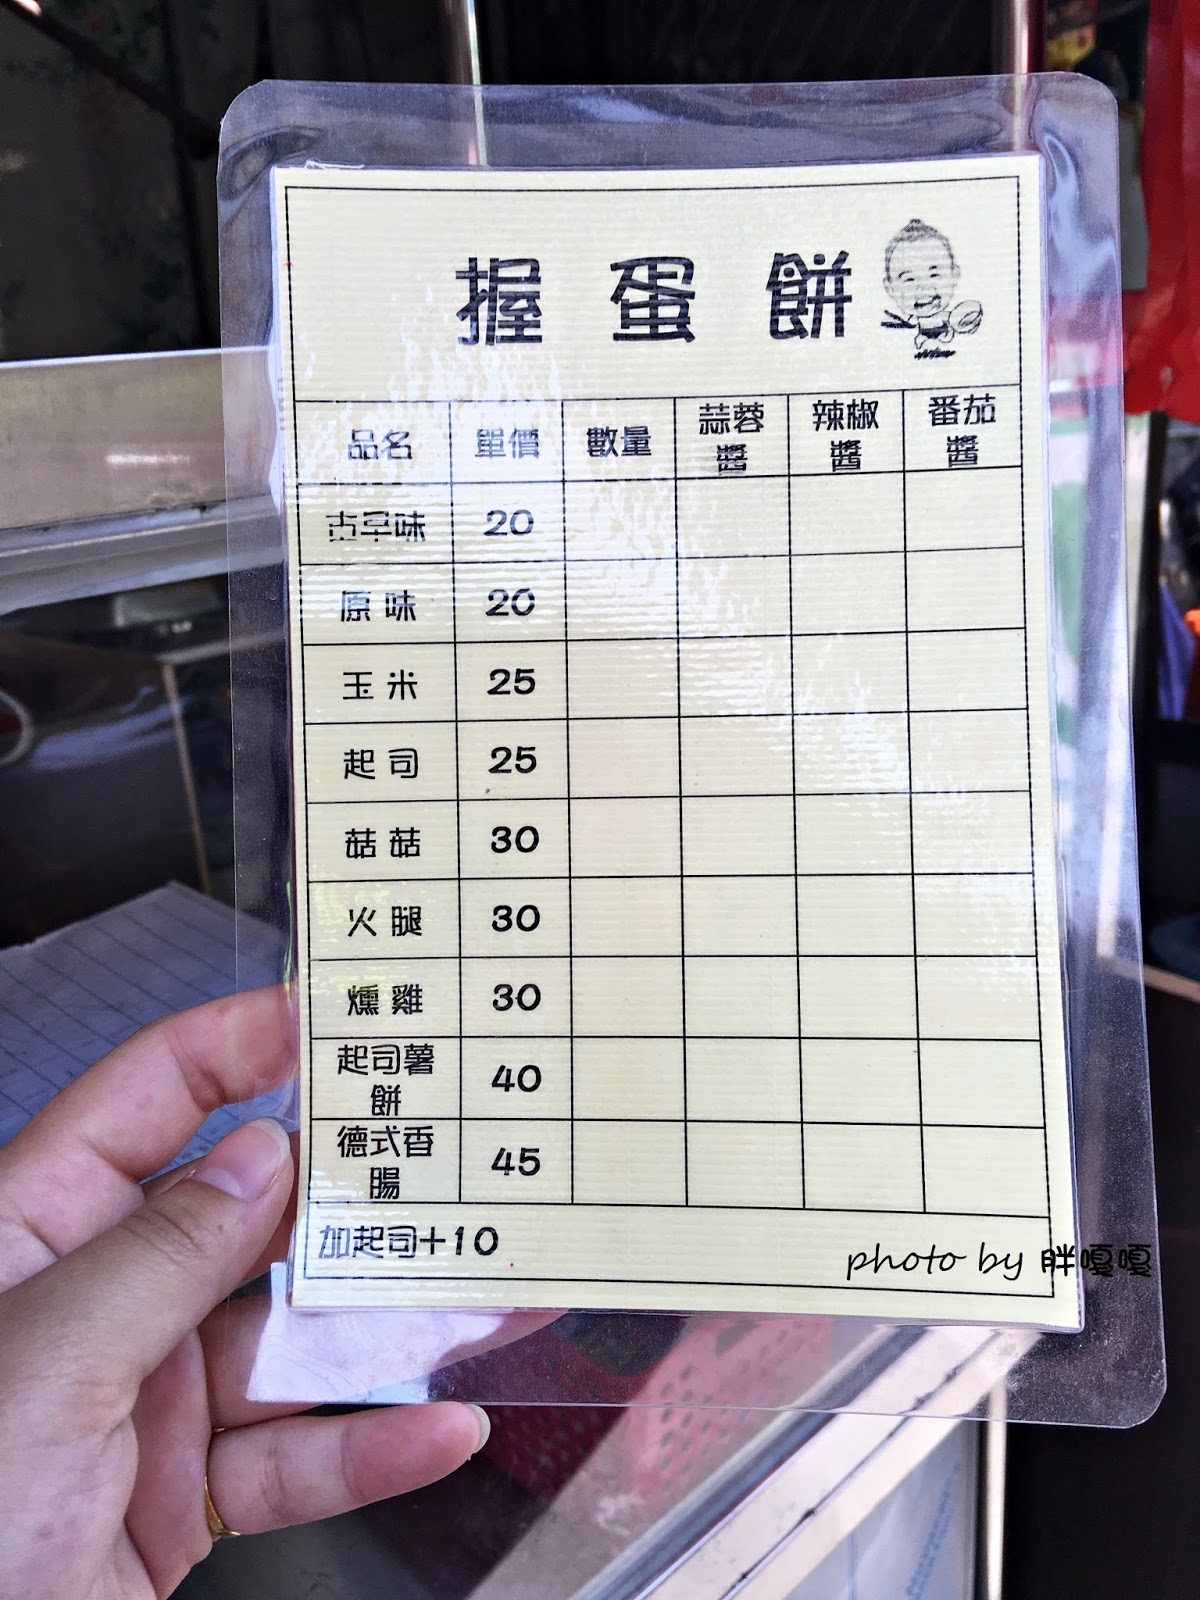 握蛋餅
品名 單價 數量 蒜蓉醬 辣椒醬 番茄醬
古早味 20
原味 20
玉米 25
起司 25
菇菇 30
火腿 30
燻雞 30
起司薯餅 40
德式香腸 45
加起司+10
photo by 胖嘎嘎